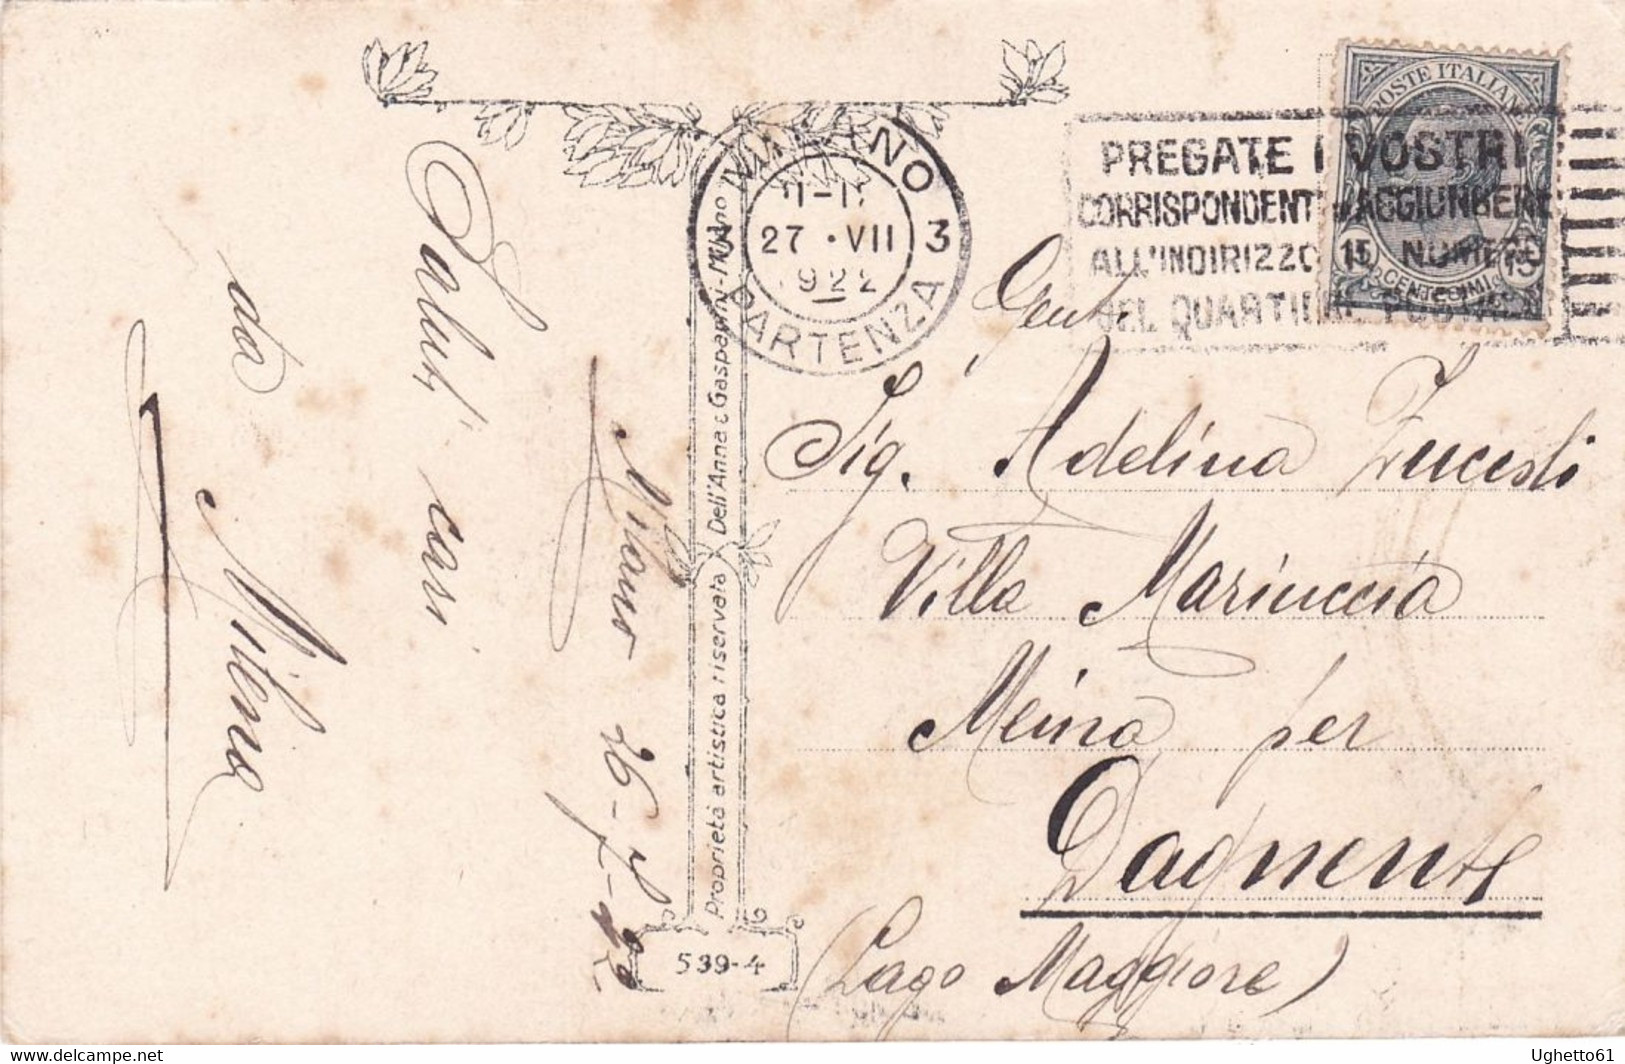 Saluti cari
da
Milena
Milano 26-7-22
Proprietà artistica riservata Dell'Anna e Gasparini-Milano
539-4
MILANO
27 · VII 3
1922
PARTENZA
PREGATE I VOSTRI
CORRISPONDENTI D'AGGIUNGERE
ALL'INDIRIZZO IL NUMERO
DEL QUARTIERE POSTALE
POSTE ITALIANE
15 15
CENTESIMI
Gent.
Sig. Adelina
Villa Mariuccia
Meina per
Dagnente
(Lago Maggiore)
www.delcampe.net
Ughetto61